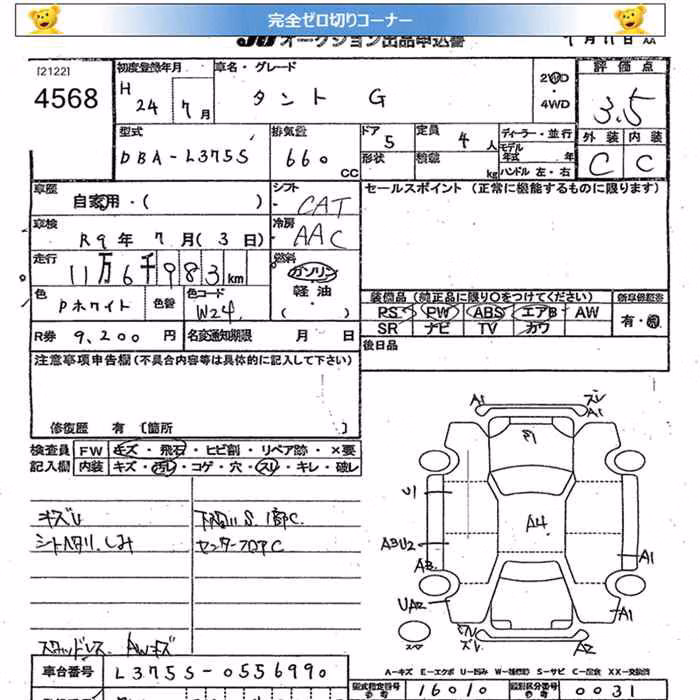 完全ゼロ切りコーナー
オークション出品申込書 7月11日
[2122] 初度登録年月 車名・グレード 2WD・4WD 評価点
4568 H 24年 7月 タント G 3.5
型式 排気量 ドア 定員 ディーラー・並行 外装 内装
DBA-L375S 660 CC 5 4人 モデル年式 年 C C
形状 積載 kg ハンドル 左・右
車歴 自家用・( ) シフト CAT セールスポイント (正常に機能するものに限ります)
車検 R9年 7月 (3日) 冷房 AAC
走行 11万6千983km 燃料 ガソリン
軽油
( )
色 Pホワイト 色替 色コード W24 装備品 (純正品に限り○をつけてください) 新車保証書
PS PW ABS エアB AW 有・無
R券 9,200円 名変通知期限 月 日 SR ナビ TV カワ
後日品
注意事項申告欄 (不具合内容等は具体的に記入して下さい)
修復歴 有 [箇所 ]
検査員 FW キズ・飛石・ヒビ割・リペア跡・×要
記入欄 内装 キズ・汚レ・コゲ・穴・スリ・キレ・破レ
A1 ズレ
A1
ワ
キズU 下廻リS.1部C.
シートヘタリ.しみ センターフロアC
U1
A4
A3U2
A1
A3
UA2
A1
スペア
ズレ
A2
スタッドレス AWキズ
車台番号 L375S-0556990
A-キズ E-エクボ U-凹み W-補修跡 S-サビ C-腐食 XX-交換済
型式指定番号 参考 16010 類別区分番号 参考 0031